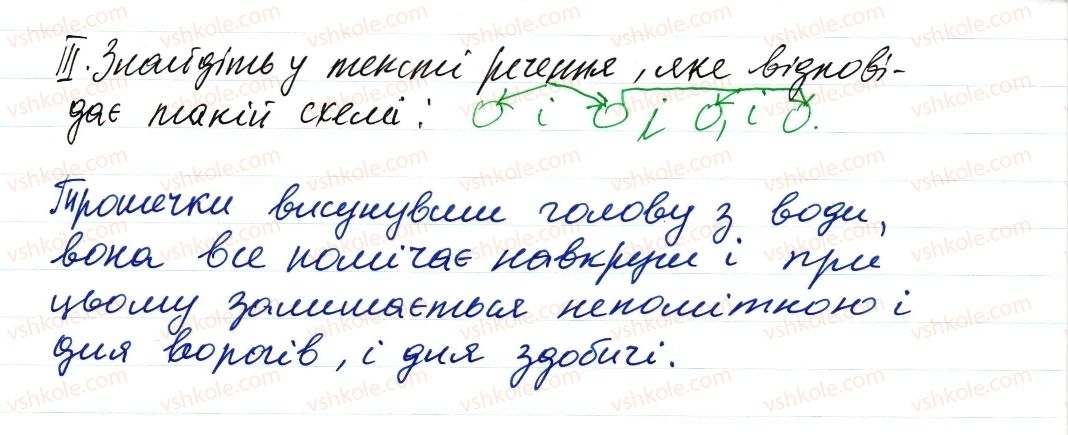 III. Знайдіть у тексті речення, яке відпові-
дає такій схемі: О і О, і О, і О.
Трошечки висунувши голову з води,
вона все помічає навкруги і при
цьому залишається непомітною і
для ворогів, і для здобичі.
vshkole.com